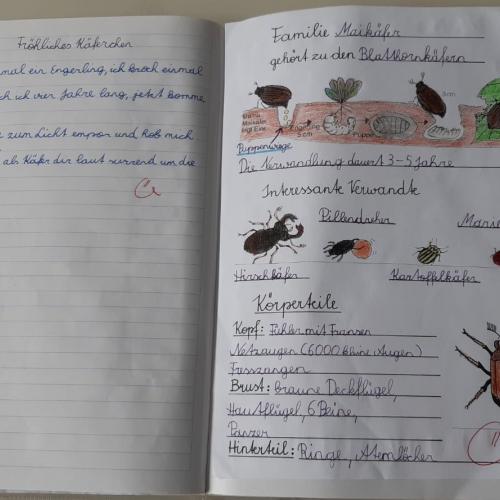 Fröhliches Käferchen
mal ein Engerling, ich kroch einmal
ich vier Jahre lang, jetzt komme
zum Licht empor und hob mich
als Käfer der laut surrend um die
Familie Maikäfer
gehört zu den Blatthornkäfern
3cm
legt Eier
Engerling
5 cm
Puppe
Puppenwiege
Die Verwandlung dauert 3-5 Jahre
Interessante Verwandte
Pillendreher
Hirschkäfer
Kartoffelkäfer
Körperteile
Kopf: Fühler mit Fransen
Netzaugen (6000 kleine Augen)
Fresszangen
Brust: braune Deckflügel,
Hautflügel, 6 Beine,
Panzer
Hinterteil: Ringe, Atemlöcher